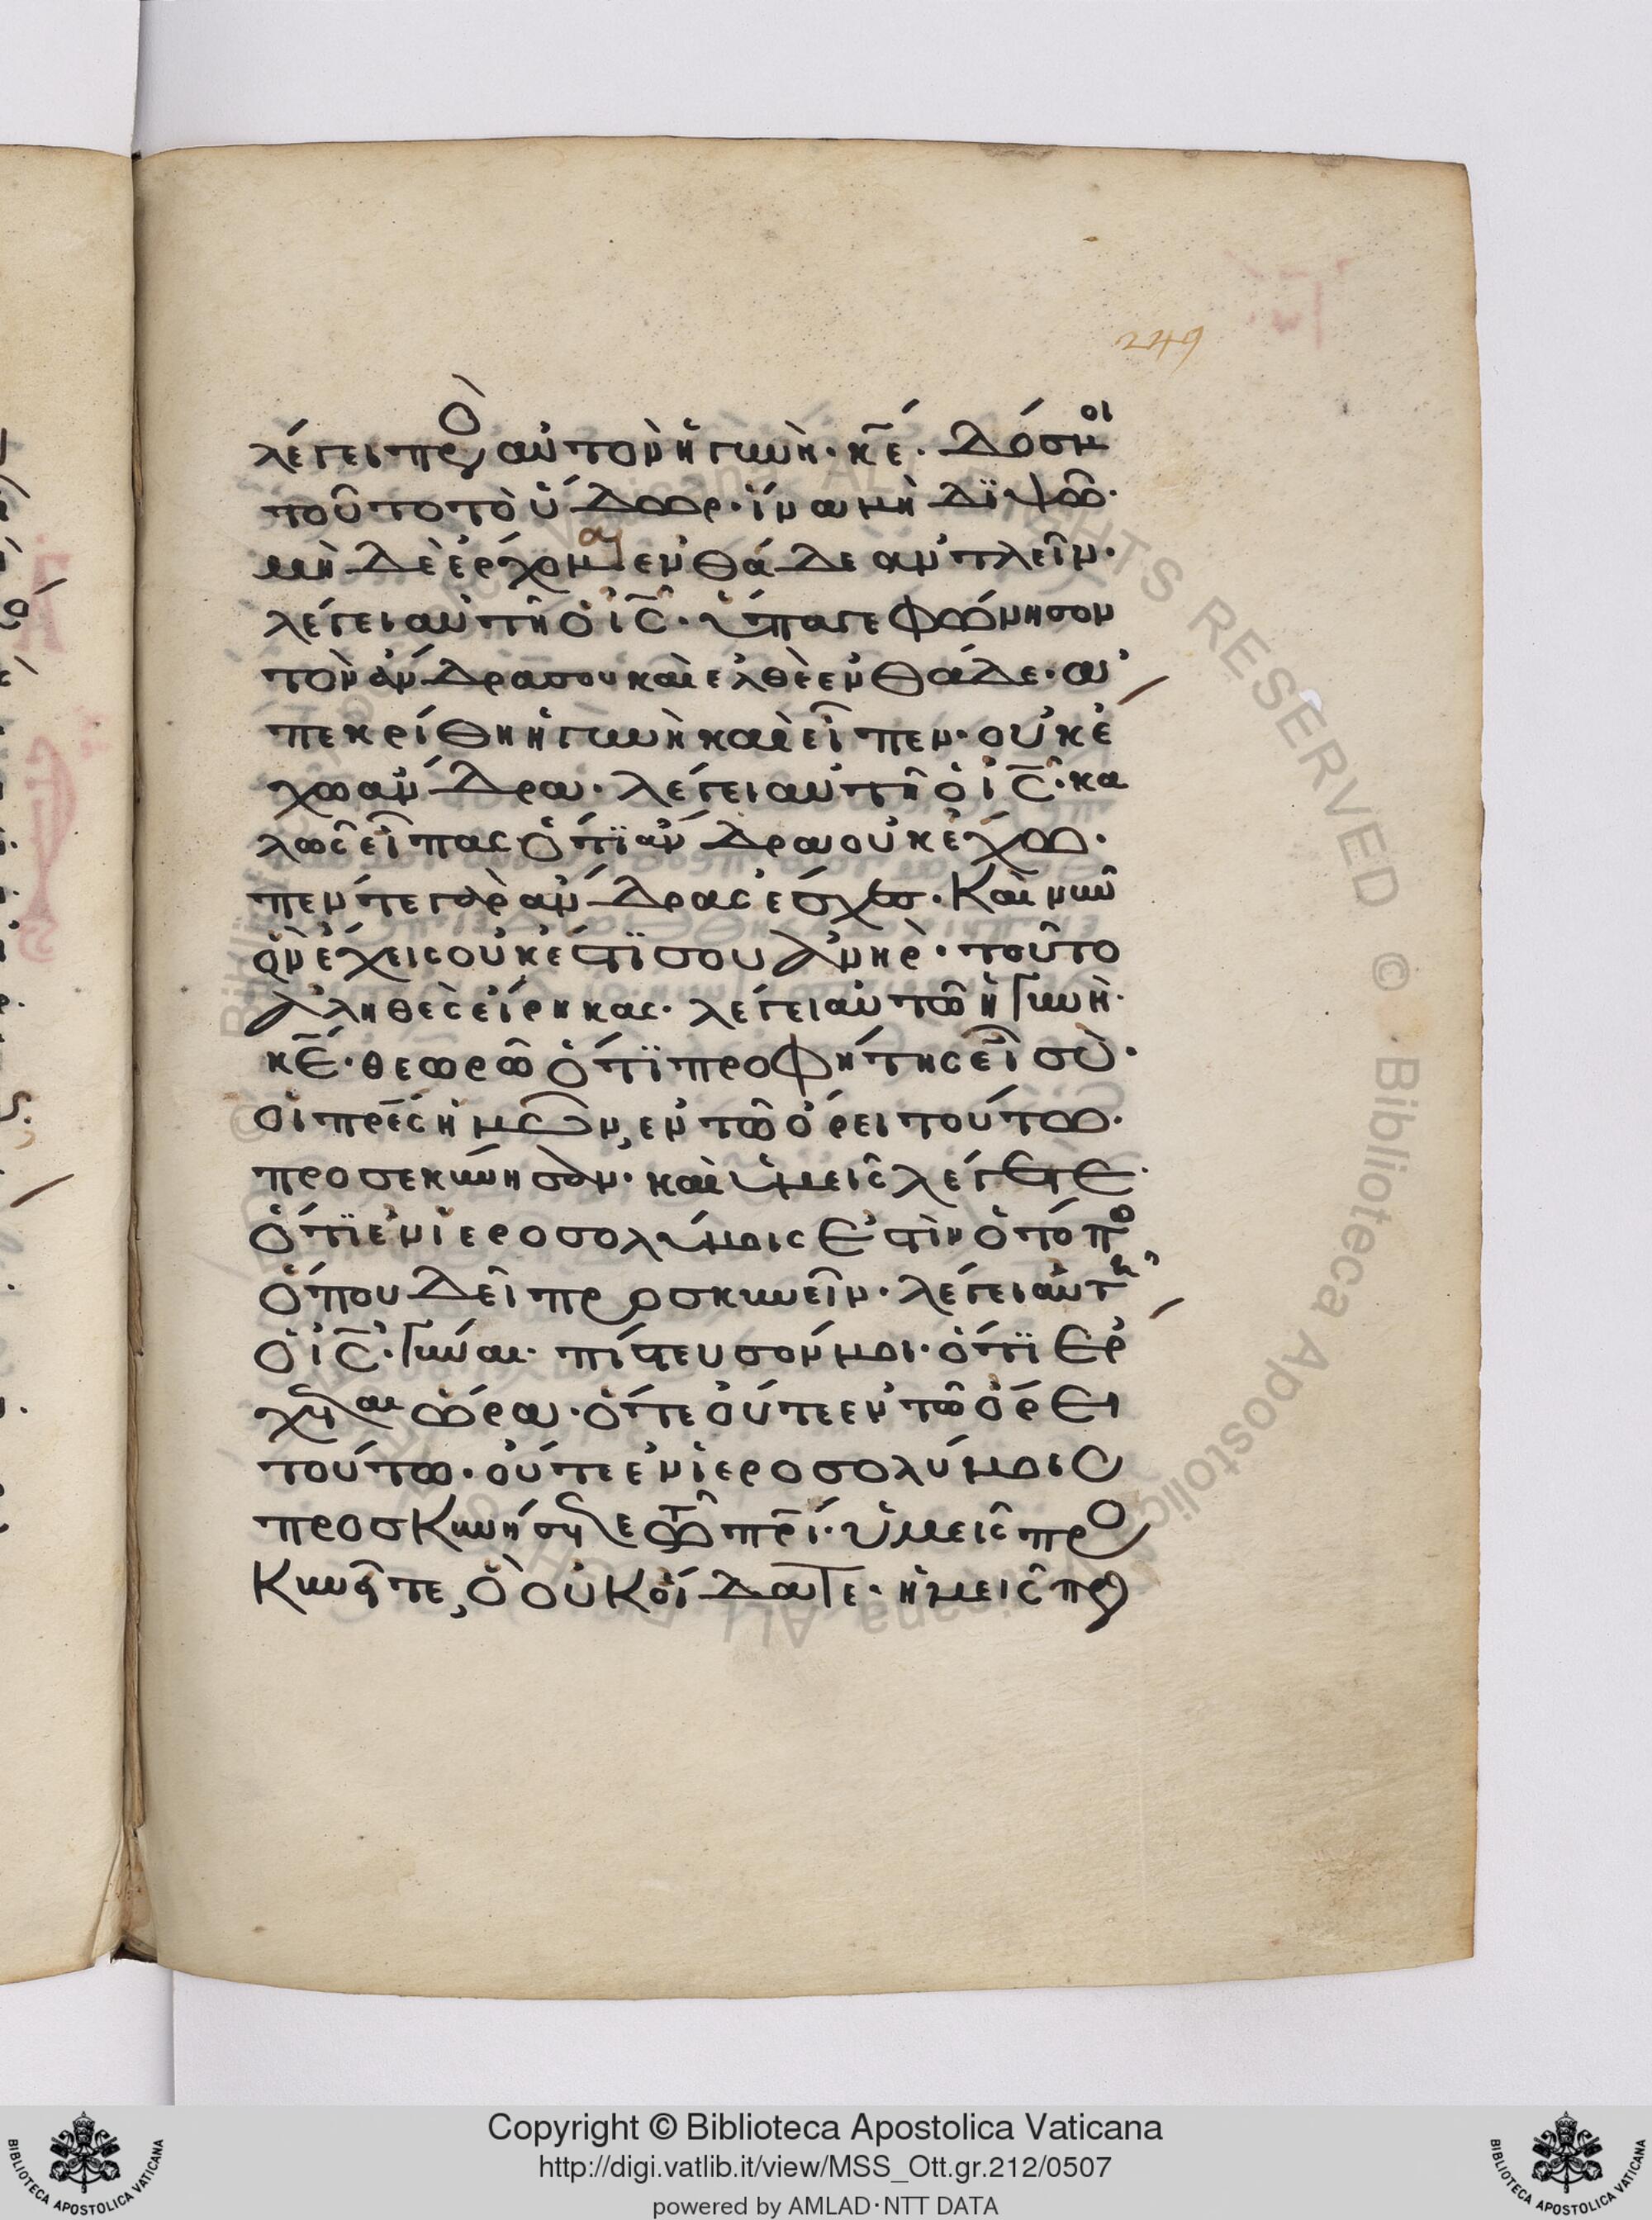 249
λέγει πρὸς αὐτὸν ἡ γυνή· κ̅ε̅· δός μοι
τοῦτο τὸ ὕδωρ· ἵνα μὴ διψῶ·
μὴ δὲ ἔρχομαι ἐνθάδε ἀντλεῖν·
λέγει αὐτῆ ὁ ι̅ς̅· ὕπαγε φώνησον
τὸν ἄνδρα σου καὶ ἐλθὲ ἐνθάδε· ἀ
πεκρίθη ἡ γυνὴ καὶ εἶπεν· οὐκ ἔ
χω ἄνδρα· λέγει αὐτῆ ὁ ι̅ς̅· κα
λῶς εἶπας ὅτϊ ἄνδρα οὐκ ἔχω·
πέντε γὰρ ἄνδρας ἔσχες· Καὶ νῦν
ὃν ἔχεις οὐκ ἔστϊ σου ἀνήρ· τοῦτο
ἀληθὲς εἴρηκας· λέγει αὐτῶ ἡ γυνή·
κ̅ε̅· θεωρῶ ὅτϊ προφήτης εἶ σύ·
οἱ πρ̅ε̅ς ἡμῶν, ἐν τῶ ὄρει τούτω·
προσεκύνησαν· καὶ ὑμεῖς λέγετε·
ὅτϊ ἐν ἱεροσολύμοις ἐστὶν ὁ τόπο
ὅπου δεῖ προσκυνεῖν· λέγει αὐτῆ
ὁ ι̅ς̅· γύναι· πίστευσόν μοι· ὅτϊ ἔρ
χεται ὥρα· ὅτε οὔτε ἐν τῶ ὄρει
τούτω· οὔτε ἐν ἱεροσολύμοις
προσκυνήσητε τῶ πρ̅ι̅· ὑμεῖς προσ
κυνεῖτε, ὃ οὐκ οἴδατε· ἡμεῖς προσ
Copyright © Biblioteca Apostolica Vaticana
http://digi.vatlib.it/view/MSS_Ott.gr.212/0507
powered by AMLAD·NTT DATA
BIBLIOTECA APOSTOLICA VATICANA
BIBLIOTECA APOSTOLICA VATICANA